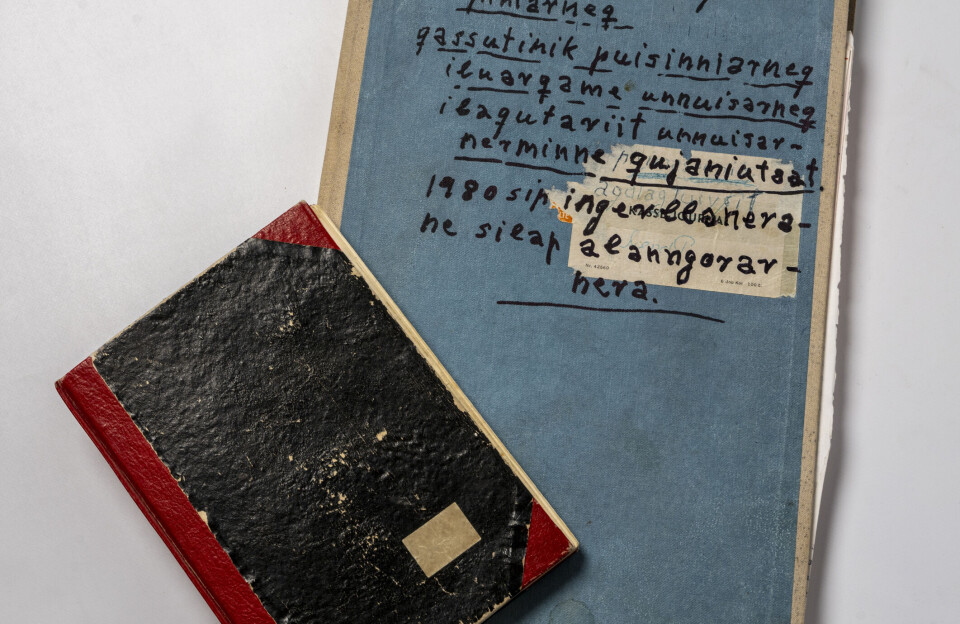 nniarneq
qassutinik puisinniarneq
iluarqame unnuisarneq
ilaqutariit unnuisar-
nerminne qujaniutsat.
1980 sip ingerllanera-
ne silap alanngorar-
nera.